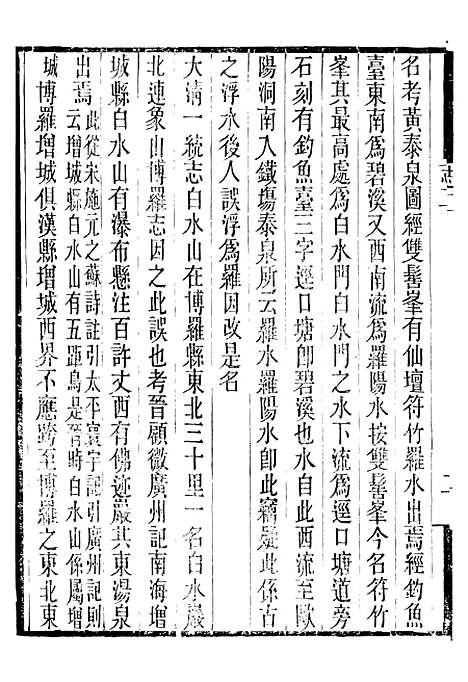 名考黃泰泉圖經雙髻峯有仙壇符竹羅水出焉經釣魚
臺東南爲碧溪又西南流爲羅陽水按雙髻峯今名符竹
峯其最高處爲白水門白水門之水下流爲逕口塘道旁
石刻有釣魚臺三字逕口塘卽碧溪也水自此西流至歐
陽洞南入鐵塲泰泉所云羅水羅陽水卽此竊疑此係古
之浮水後人誤浮爲羅因改是名
大清一統志白水山在博羅縣東北三十里一名白水巖
北連象山博羅志因之此誤也考晉顧微廣州記南海增
城縣白水山有瀑布懸注百許丈西有佛迹巖其東湯泉
出焉此從宋施元之蘇詩註引太平寰宇記引廣州記則
云增城縣白水山有五距鳥是晉時白水山係屬增
城博羅增城俱漢縣增城西界不應跨至博羅之東北東